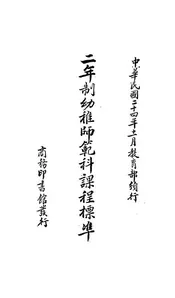 中華民國二十四年十一月教育部頒行
二年制幼稚師範科課程標準
商務印書館發行